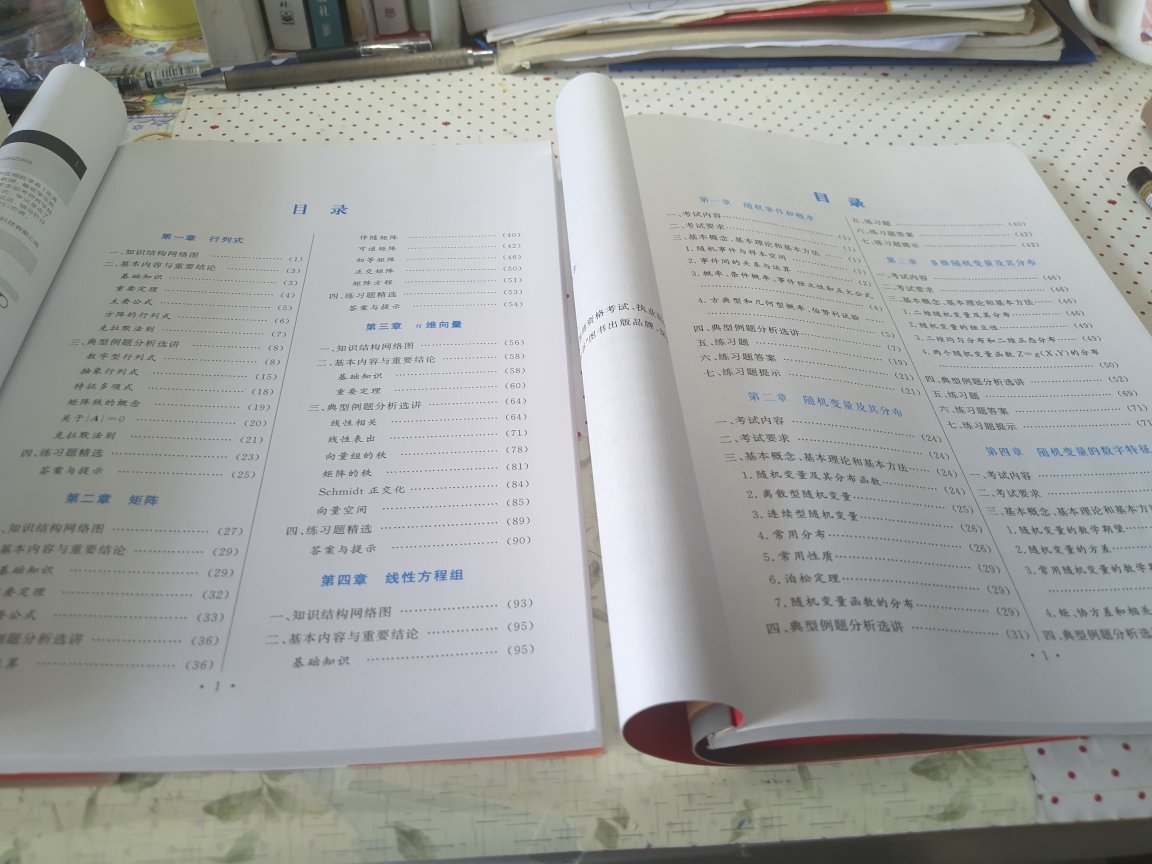 目 录
第一章 行列式
一、知识结构网络图 (1)
二、基本内容与重要结论 (3)
基础知识 (3)
重要定理 (4)
主要公式 (5)
方阵的行列式 (6)
克拉默法则 (7)
三、典型例题分析选讲 (8)
数字型行列式 (8)
抽象行列式 (15)
特征多项式 (18)
矩阵秩的概念 (19)
关于|A|=0 (20)
克拉默法则 (21)
四、练习题精选 (23)
答案与提示 (25)
第二章 矩阵
、知识结构网络图 (27)
基本内容与重要结论 (29)
基础知识 (29)
要定理 (32)
要公式 (33)
例题分析选讲 (36)
算 (36)
伴随矩阵 (40)
可逆矩阵 (42)
初等矩阵 (46)
正交矩阵 (50)
矩阵方程 (51)
四、练习题精选 (53)
答案与提示 (54)
第三章 n维向量
一、知识结构网络图 (56)
二、基本内容与重要结论 (58)
基础知识 (58)
重要定理 (60)
三、典型例题分析选讲 (64)
线性相关 (64)
线性表出 (71)
向量组的秩 (78)
矩阵的秩 (81)
Schmidt 正交化 (84)
向量空间 (85)
四、练习题精选 (89)
答案与提示 (90)
第四章 线性方程组
一、知识结构网络图 (93)
二、基本内容与重要结论 (95)
基础知识 (95)
· 1 ·
资格考试、执业
图书出版品牌
目 录
第一章 随机事件和概率
一、考试内容 (1)
二、考试要求 (1)
三、基本概念、基本理论和基本方法 (1)
1.随机事件与样本空间 (1)
2.事件间的关系与运算 (2)
3.概率、条件概率、事件独立性和五大公式
4.古典型和几何型概率,伯努利试验 (4)
四、典型例题分析选讲 (5)
五、练习题 (19)
六、练习题答案 (21)
七、练习题提示 (21)
第二章 随机变量及其分布
一、考试内容 (24)
二、考试要求 (24)
三、基本概念、基本理论和基本方法 (24)
1.随机变量及其分布函数 (24)
2.离散型随机变量 (25)
3.连续型随机变量 (26)
4.常用分布 (26)
5.常用性质 (29)
6.泊松定理 (29)
7.随机变量函数的分布 (29)
四、典型例题分析选讲 (31)
五、练习题 (40)
六、练习题答案 (42)
七、练习题提示 (42)
第三章 多维随机变量及其分布
一、考试内容 (46)
二、考试要求 (46)
三、基本概念、基本理论和基本方法 (46)
1.二维随机变量及其分布 (46)
2.随机变量的独立性 (49)
3.二维均匀分布和二维正态分布 (49)
4.两个随机变量函数Z=g(X,Y)的分布
(50)
四、典型例题分析选讲 (52)
五、练习题 (69)
六、练习题答案 (71)
七、练习题提示 (71
第四章 随机变量的数字特征
一、考试内容
二、考试要求
三、基本概念、基本理论和基本方
1.随机变量的数学期望
2.随机变量的方差
3.常用随机变量的数学期
4.矩、协方差和相关
四、典型例题分析选
· 1 ·